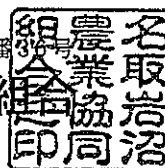 名取岩沼
農業協同
組合之印
組合